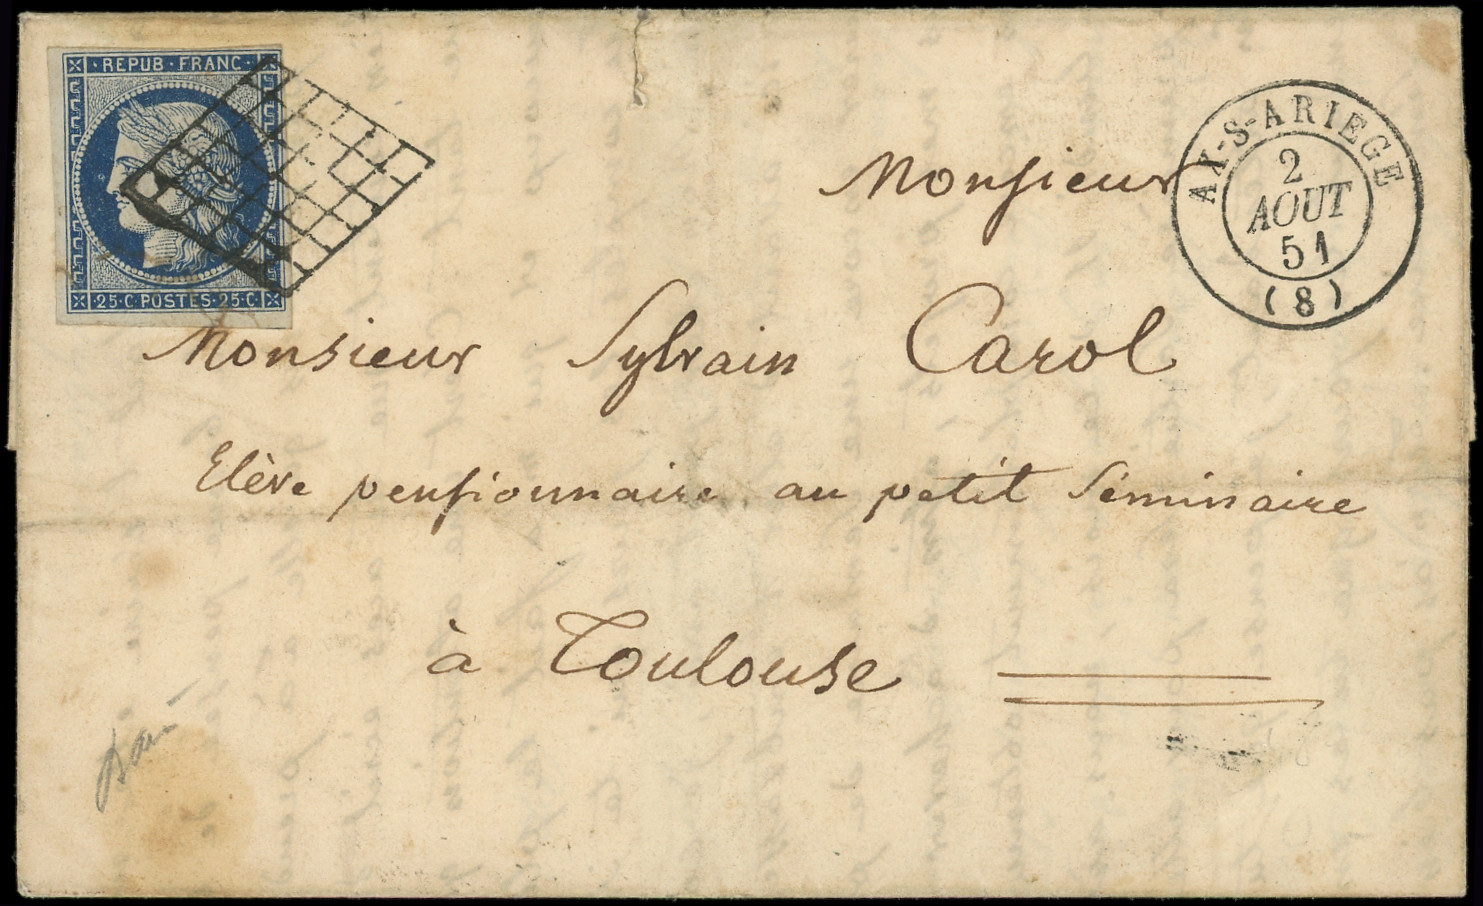 REPUB · FRANC ·
25 · C POSTES · 25 · C ·
AX-S-ARIEGE
2
AOUT
51
(8)
Monsieur
Monsieur Sylvain Carol
Elève pensionnaire au petit Séminaire
à Toulouse